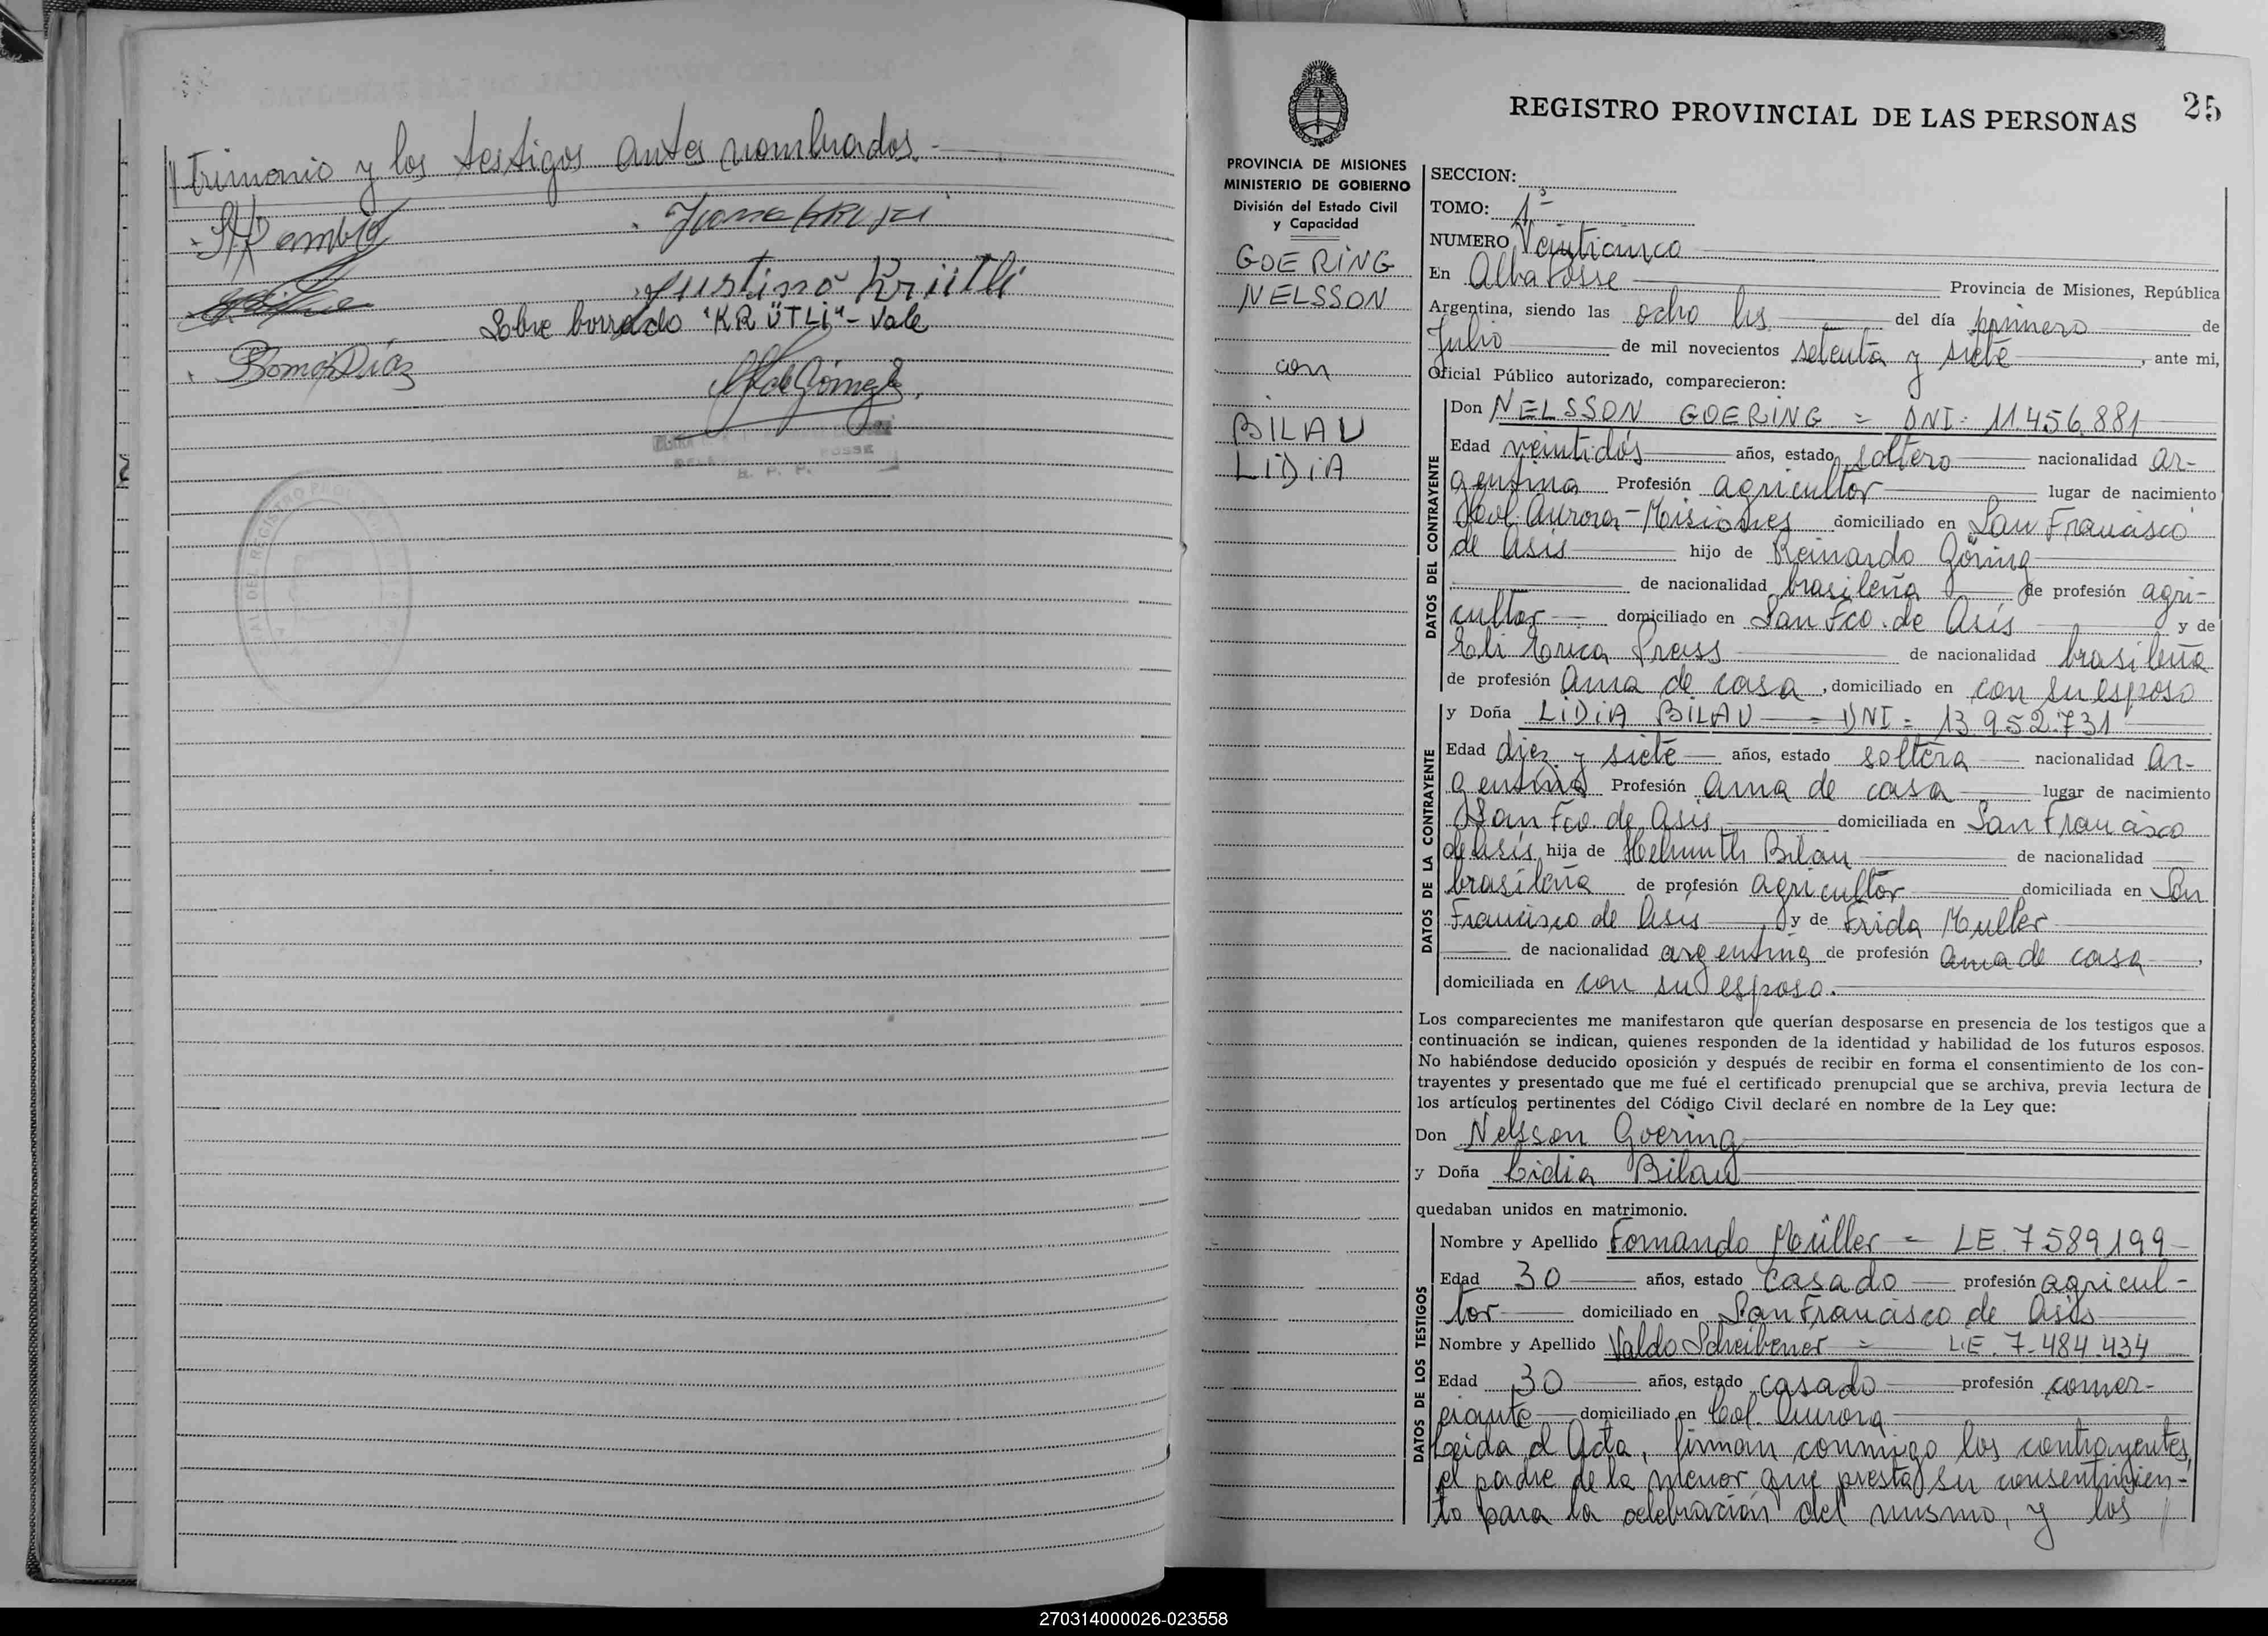 trimonio y los testigos antes nombrados.-
Justino Krütli
Sobre borrado "KRÜTLI" - Vale
25
REGISTRO PROVINCIAL DE LAS PERSONAS
PROVINCIA DE MISIONES
MINISTERIO DE GOBIERNO
División del Estado Civil
y Capacidad
GOERING
NELSSON
con
BILAU
LIDIA
SECCION:
TOMO: 1º
NUMERO Veinticinco
En Alba Posse Provincia de Misiones, República
Argentina, siendo las ocho hs del día primero de
Julio de mil novecientos setenta y siete, ante mi,
Oficial Público autorizado, comparecieron:
DATOS DEL CONTRAYENTE
Don NELSSON GOERING = DNI: 11.456.881
Edad veintidós años, estado soltero nacionalidad ar-
gentina Profesión agricultor lugar de nacimiento
Col. Aurora-Misiones domiciliado en San Francisco
de Asis hijo de Reinardo Göring
de nacionalidad brasileña de profesión agri-
cultor domiciliado en San Fco. de Asís y de
Eli Erica Preiss de nacionalidad brasileña
de profesión ama de casa, domiciliado en con su esposo
DATOS DE LA CONTRAYENTE
y Doña LIDIA BILAU = DNI = 13.952.731
Edad diez y siete años, estado soltera nacionalidad ar-
gentina Profesión ama de casa lugar de nacimiento
San Fco. de Asis domiciliada en San Francisco
de Asís hija de Helmuth Bilau de nacionalidad
brasileña de profesión agricultor domiciliada en San
Francisco de Asís y de Frida Muller
de nacionalidad argentina de profesión ama de casa,
domiciliada en con su esposo.
Los comparecientes me manifestaron que querían desposarse en presencia de los testigos que a
continuación se indican, quienes responden de la identidad y habilidad de los futuros esposos.
No habiéndose deducido oposición y después de recibir en forma el consentimiento de los con-
trayentes y presentado que me fué el certificado prenupcial que se archiva, previa lectura de
los artículos pertinentes del Código Civil declaré en nombre de la Ley que:
Don Nelsson Goering
y Doña Lidia Bilau
quedaban unidos en matrimonio.
DATOS DE LOS TESTIGOS
Nombre y Apellido Fernando Müller = LE. 7589199
Edad 30 años, estado casado profesión agricul-
tor domiciliado en San Francisco de Asis
Nombre y Apellido Valdo Scheibener = LE. 7.484.434
Edad 30 años, estado casado profesión comer-
ciante domiciliado en Col. Aurora
Leida el Acta, firman conmigo los contrayentes,
el padre de la menor que presta su consentimien-
to para la celebración del mismo, y los
270314000026-023558